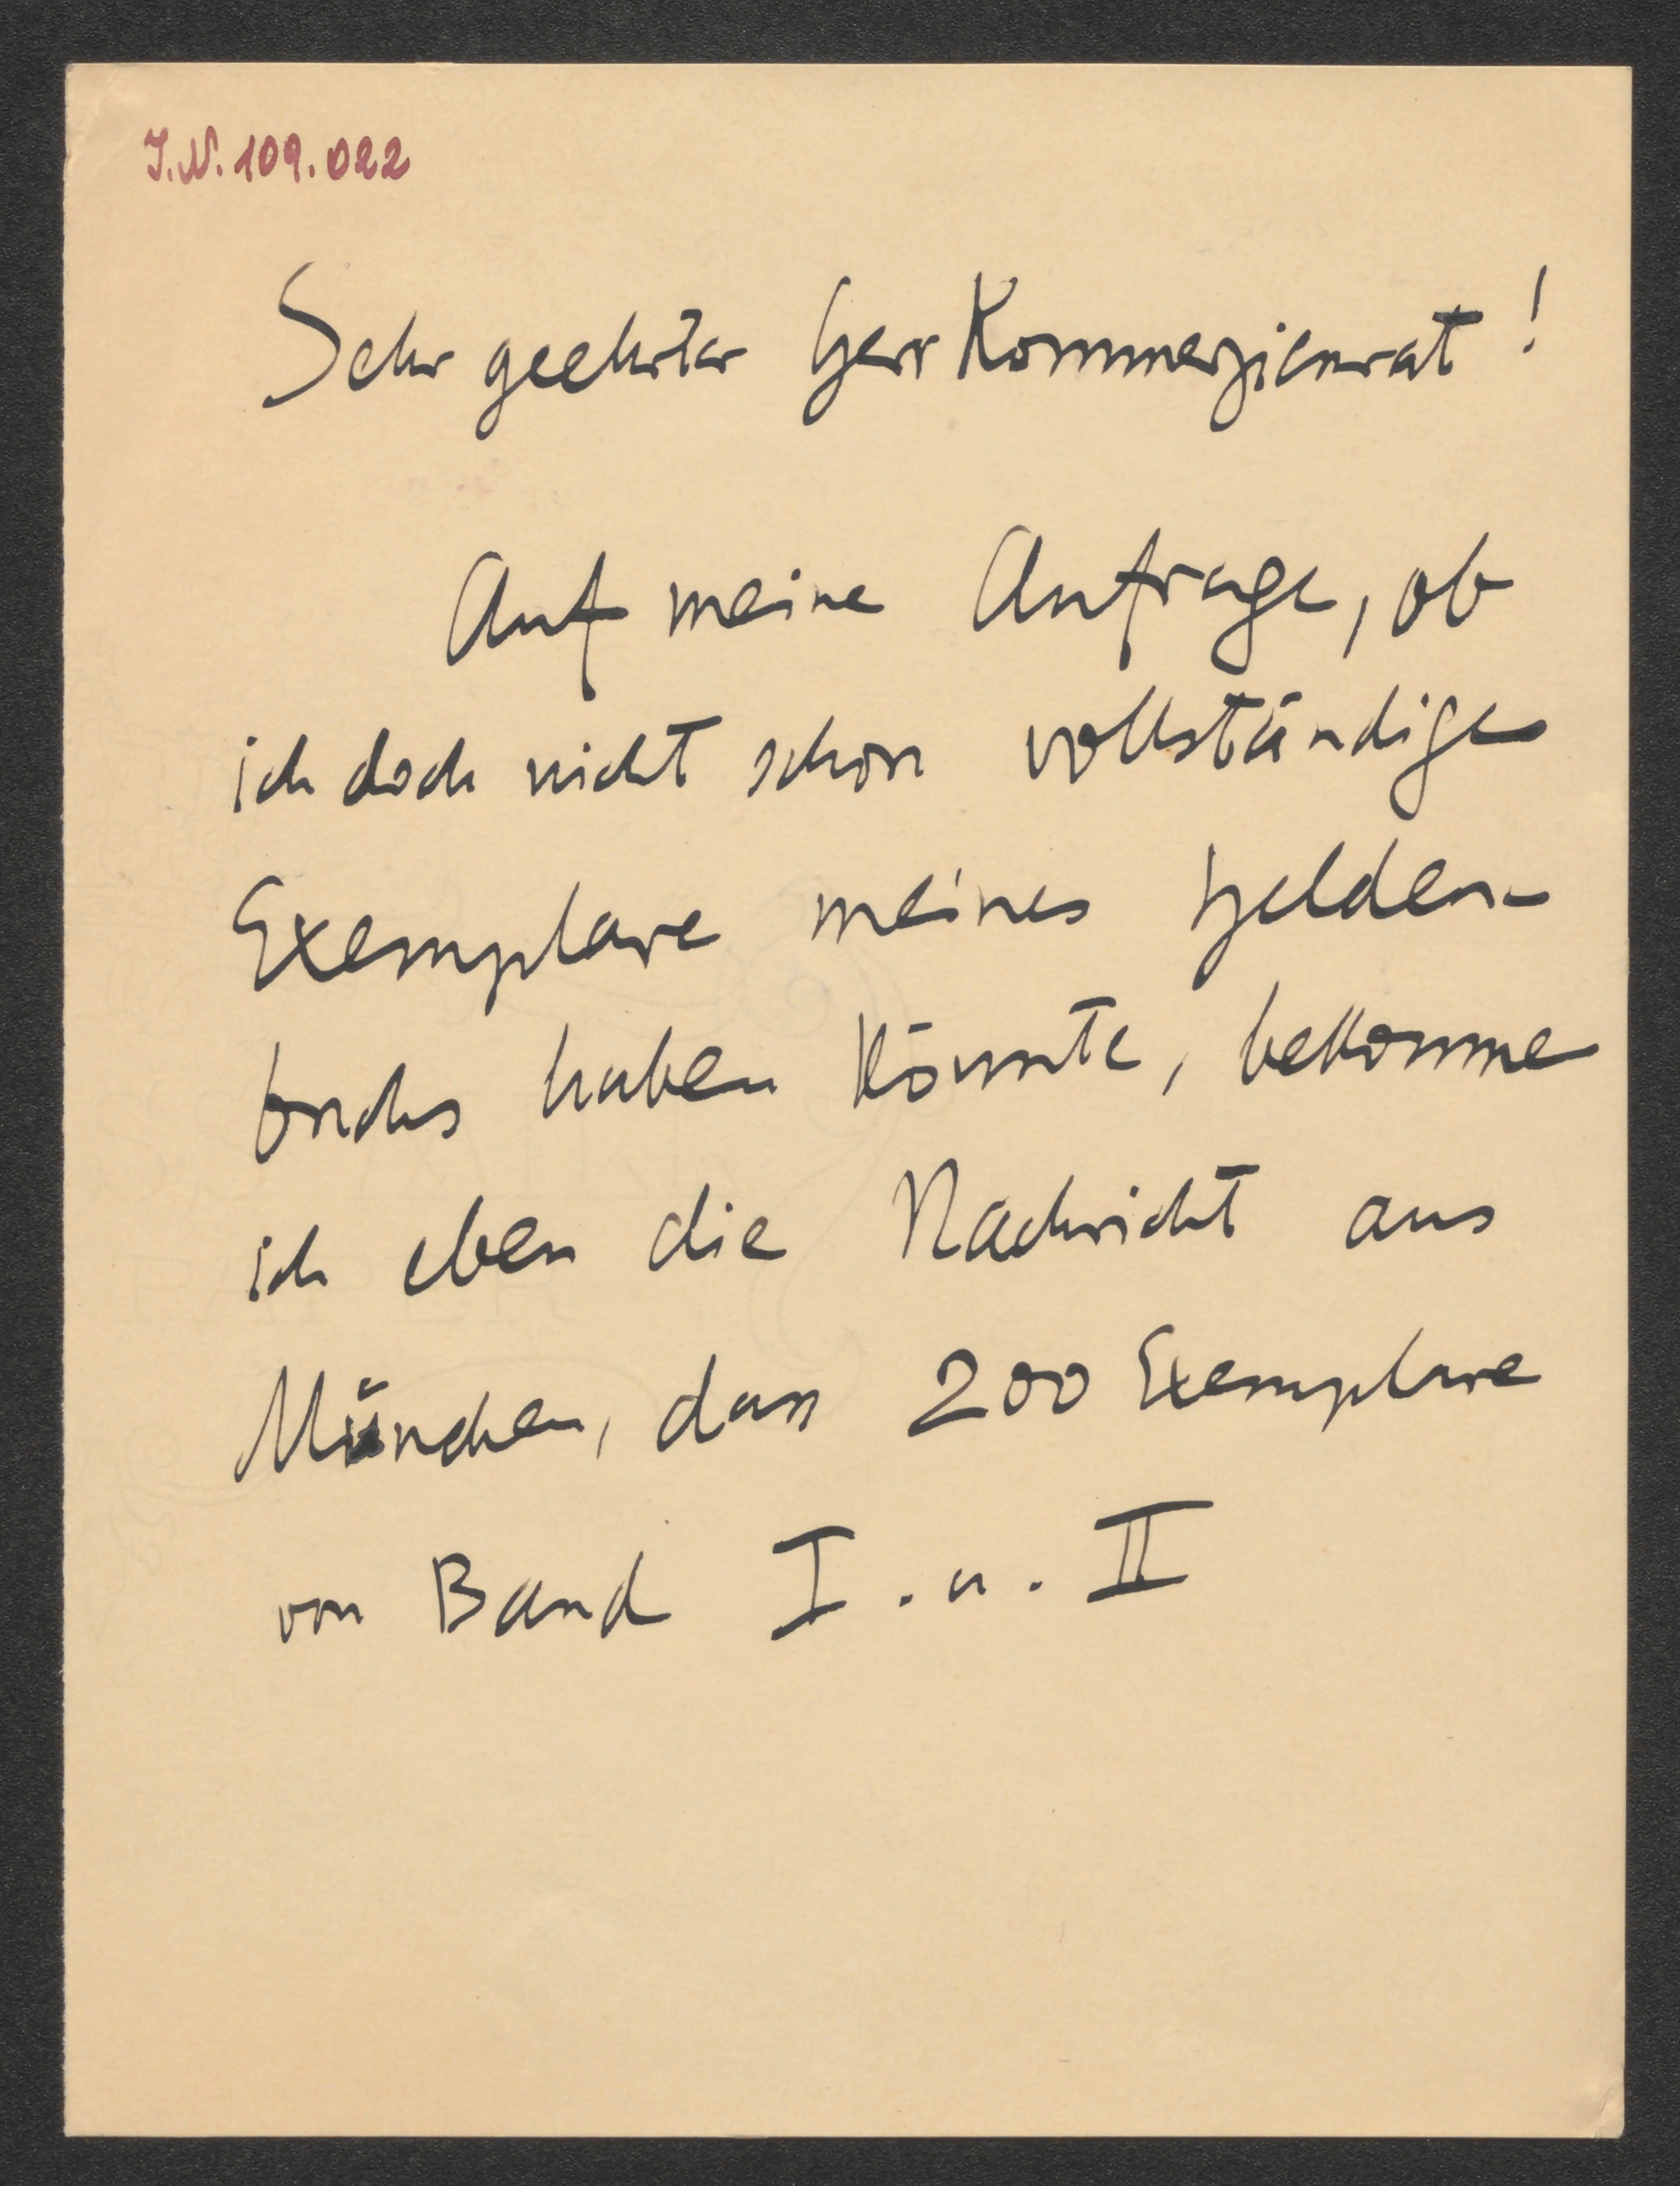 J.N. 109.022
Sehr geehrter Herr Kommerzienrat!
Auf meine Anfrage, ob
ich doch nicht schon vollständige
Exemplare meines Helden-
buches haben könnte, bekomme
ich eben die Nachricht aus
München, dass 200 Exemplare
von Band I. u. II